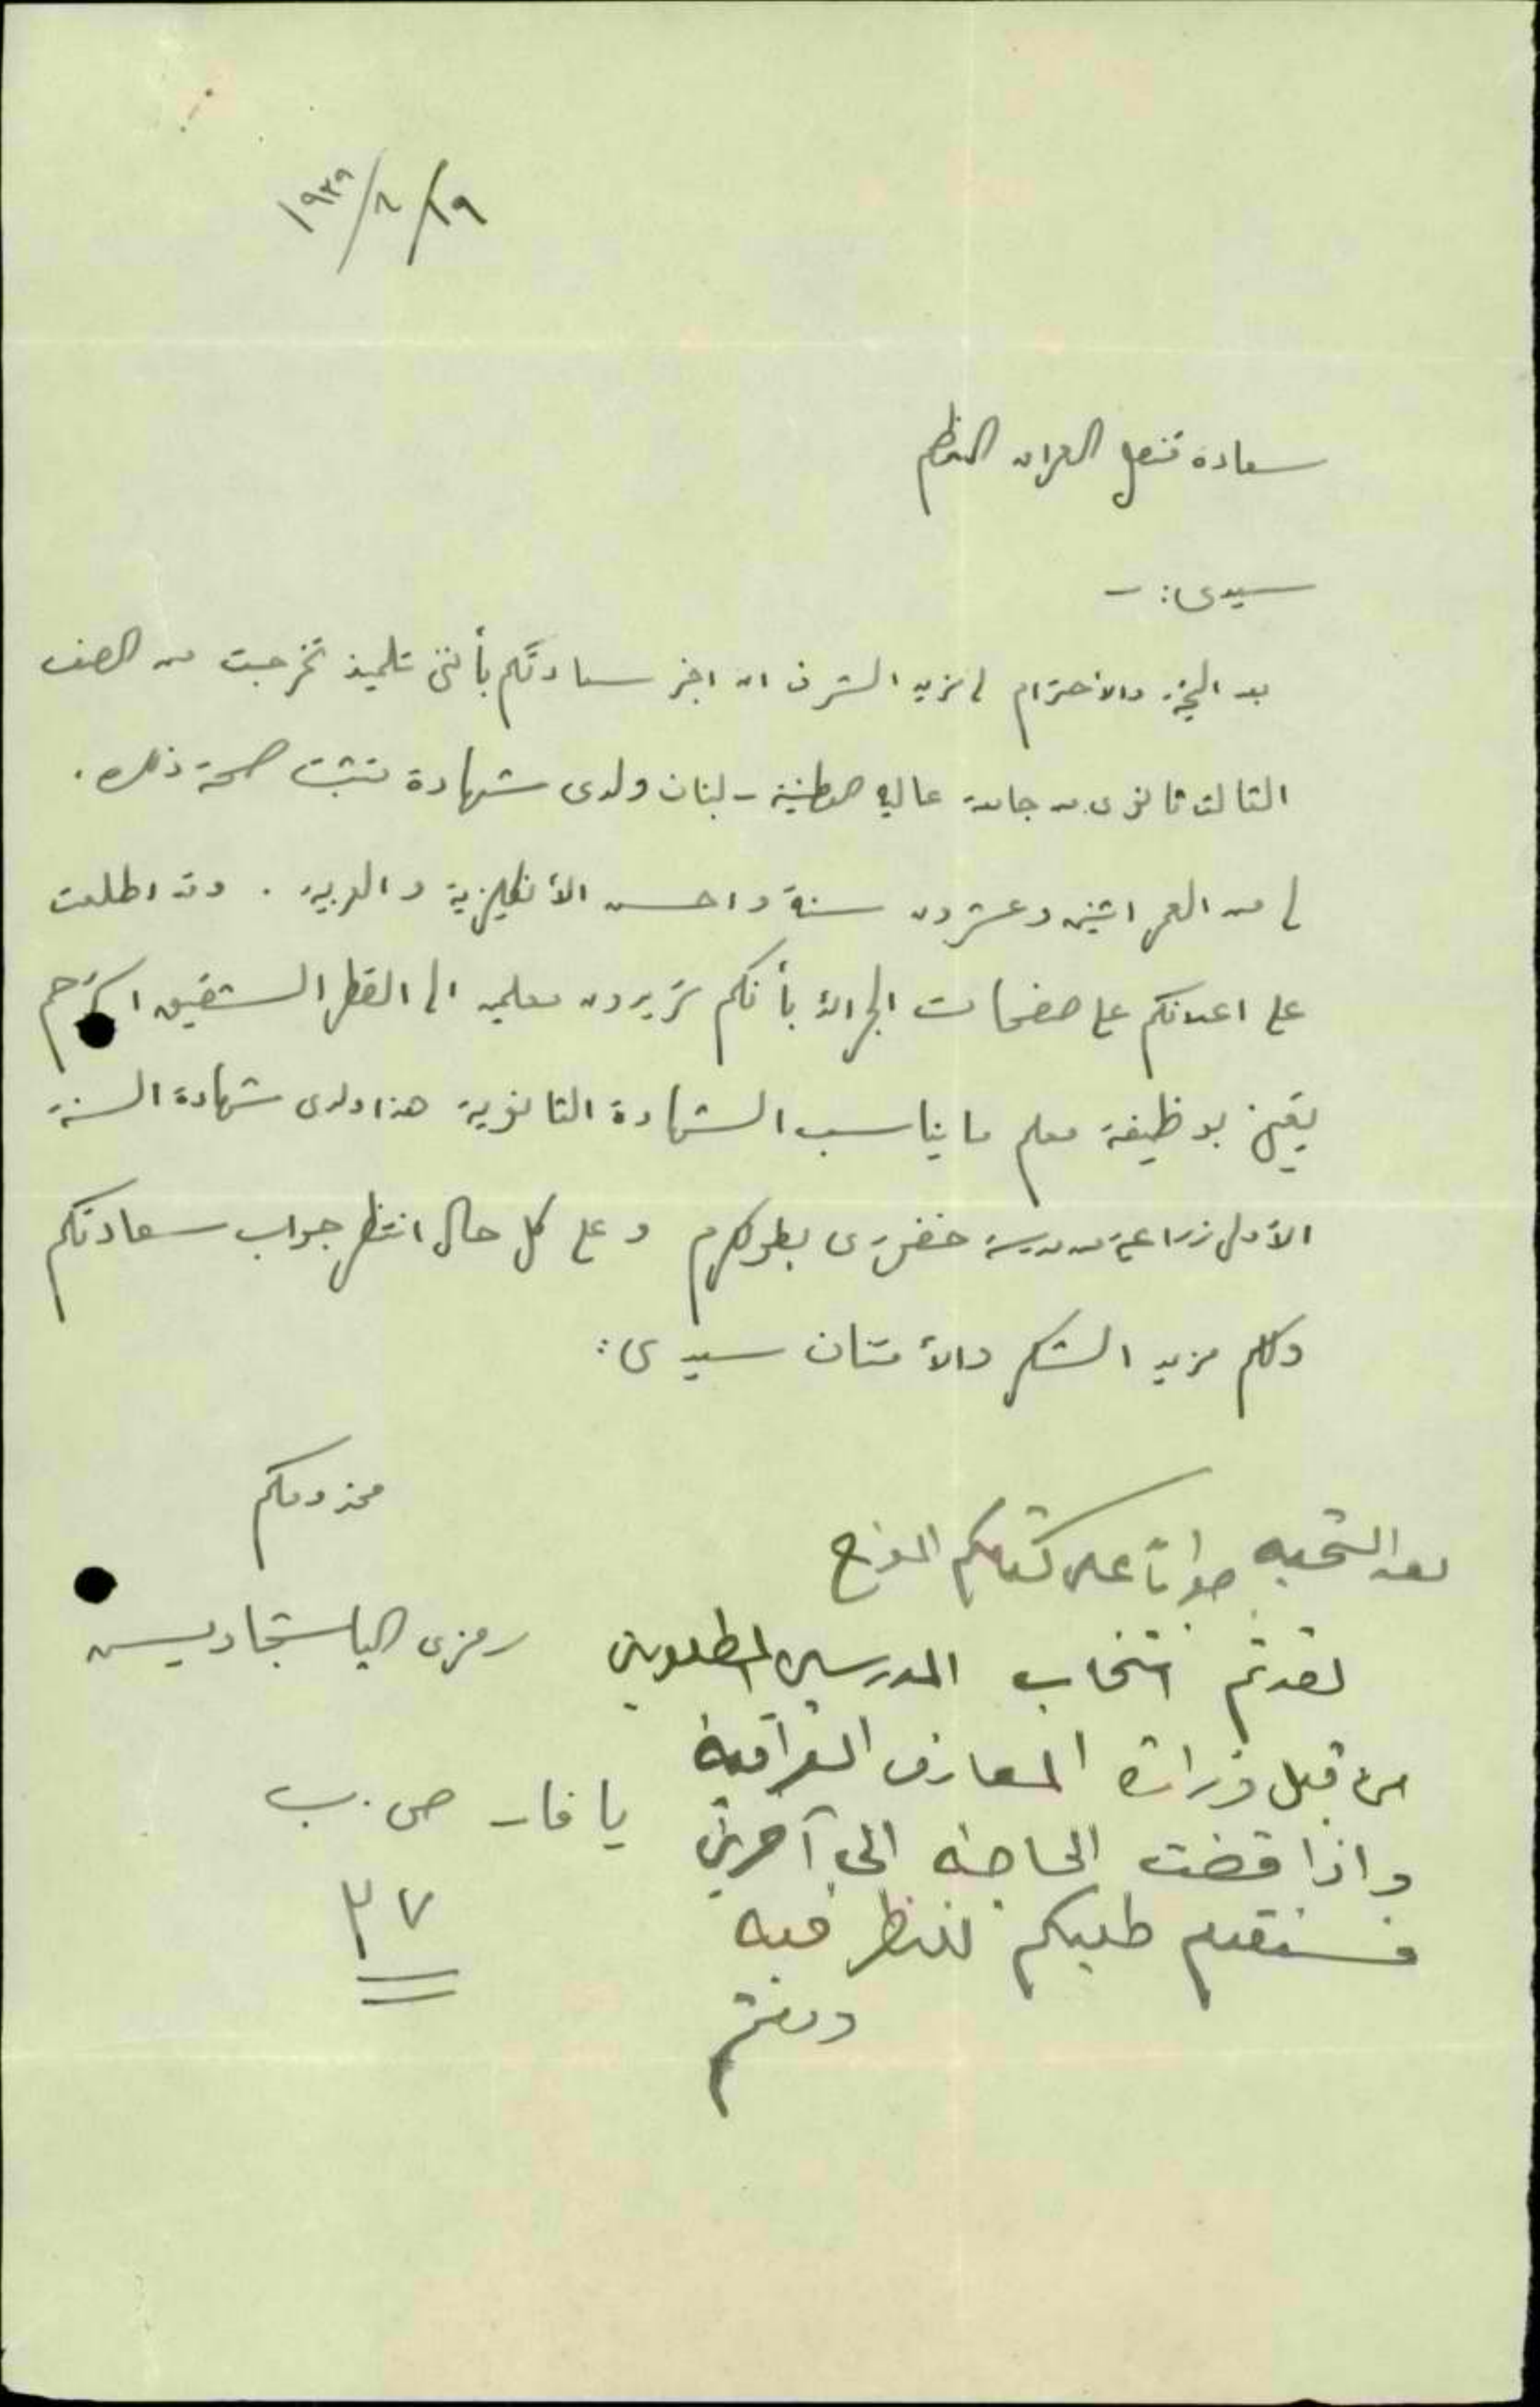 ١٩/٨/١٩٣٩
سعادة قنصل العراق المعظم
سيدي: -
بعد التحية والاحترام لي مزيد الشرف ان اخبر سعادتكم بأنني تلميذ تخرجت من الصف
الثالث ثانوي من جامعة عاليه الوطنية - لبنان ولدي شهادة تثبت صحة ذلك.
لي من العمر اثنين وعشرون سنة واحسن الأنكليزية والعربية. وقد اطلعت
على اعلانكم على صفحات الجرائد بأنكم تريدون معلمين الى القطر الشقيق
بوظيفة معلم ما يناسب الشهادة الثانوية هذا ولدي شهادة السنة
الأولى زراعة من مدرسة خضوري بطولكرم وعلى كل حال انتظر جواب سعادتكم
ولكم مزيد الشكر والأمتنان سيدي:
مخدومكم
رمزي
يافا - ص. ب
٣٧
بعد التحيه جواباً على كتابكم المؤرخ
لقد تم انتخاب المدرسين المطلوبين
من قبل وزارة المعارف العراقية
واذا قضت الحاجة الى آخرين
فسنقدم طلبكم للنظر فيه
ودمتم